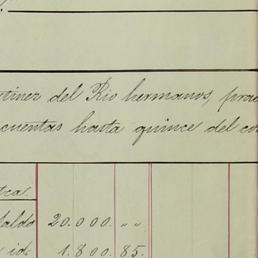 tinez del Rio hermanos,
cuentas hasta quince del
aldo 20.000. „ „
id. 1.800. 85.